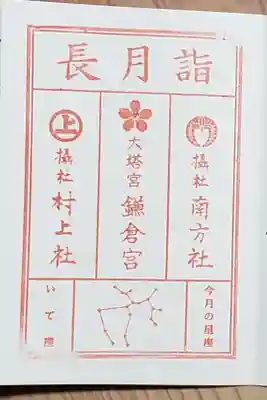 長月詣
攝社 南方社
大塔宮 鎌倉宮
上
攝社 村上社
今月の星座
いて座